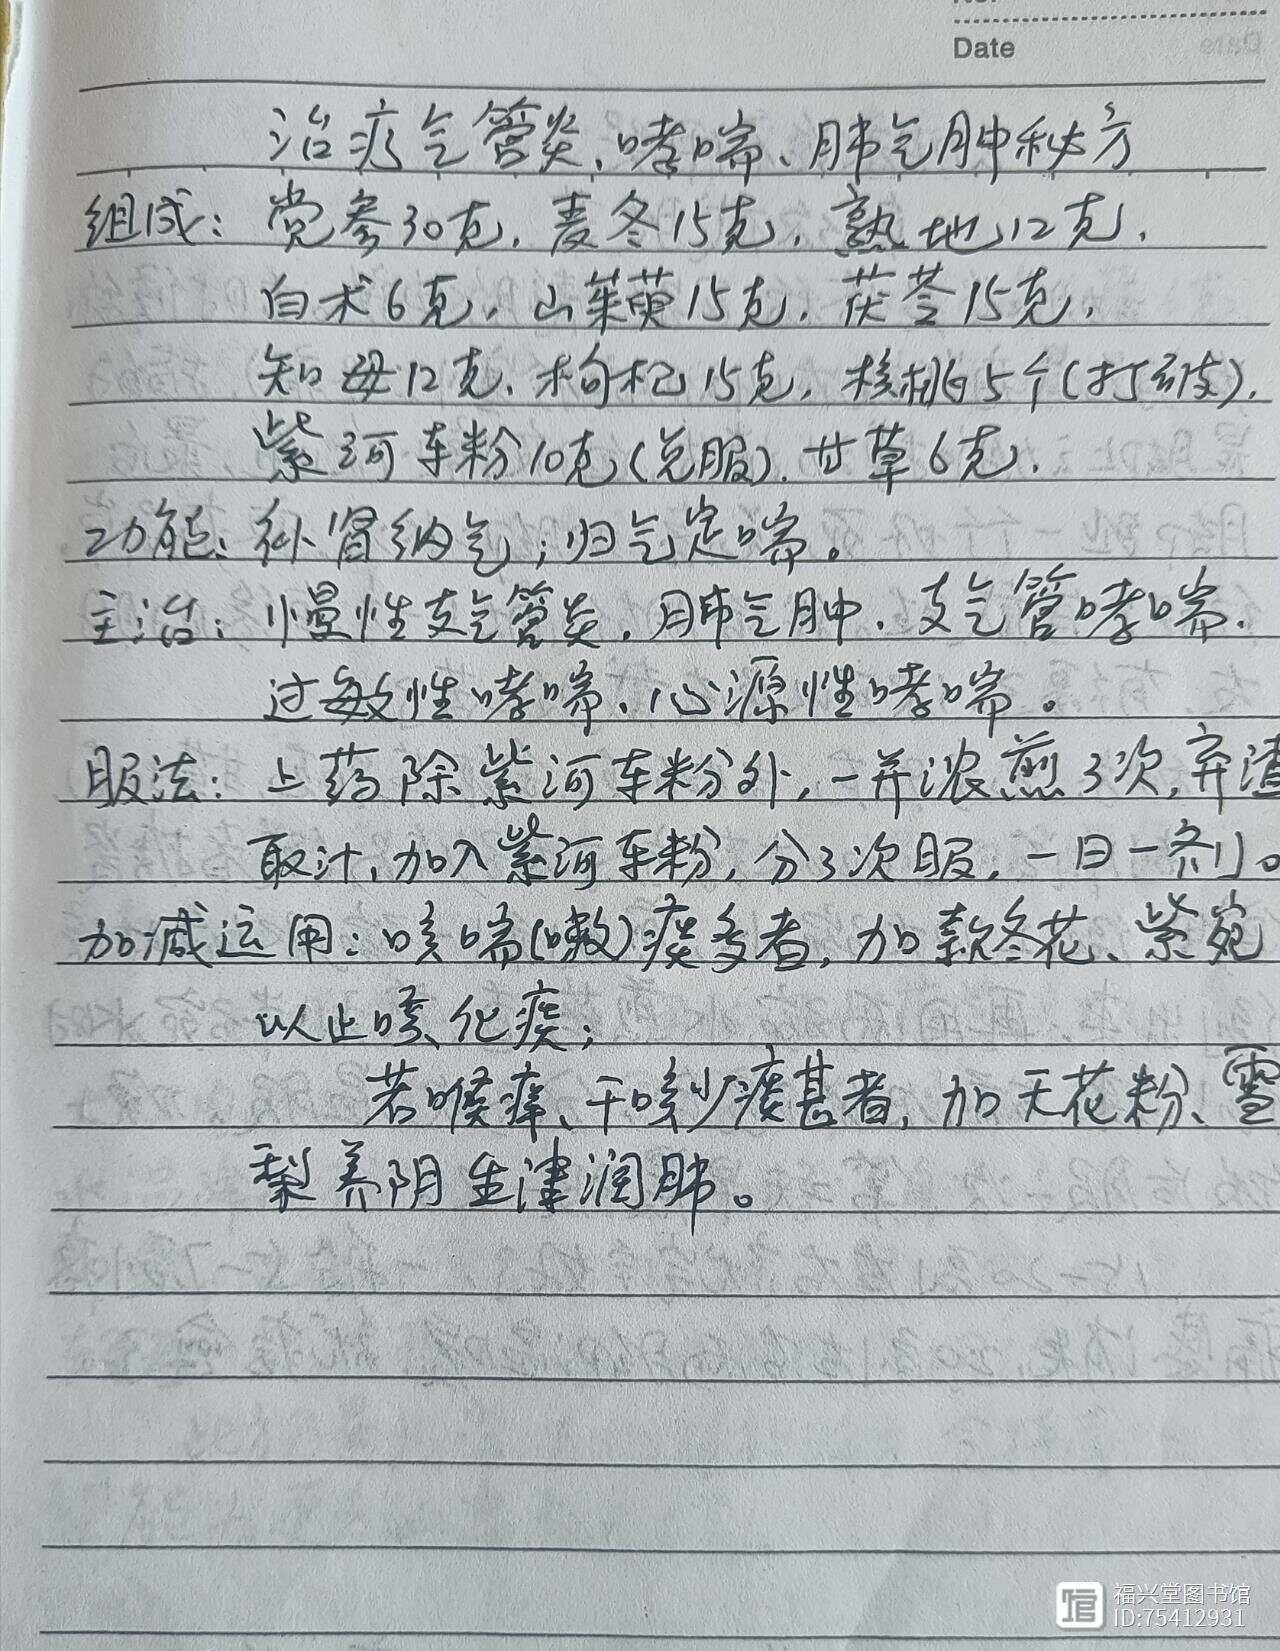 Date
治疗气管炎、哮喘、肺气肿秘方
组成：党参30克，麦冬15克，熟地12克，
白术6克，山茱萸15克，茯苓15克，
知母12克，枸杞15克，核桃肉5个(打破)，
紫河车粉10克(兑服)，甘草6克，
功能：补肾纳气；归气定喘。
主治：慢性支气管炎，肺气肿，支气管哮喘，
过敏性哮喘，心源性哮喘。
服法：上药除紫河车粉外，一并浓煎3次，弃渣
取汁，加入紫河车粉，分3次服，一日一剂。
加减运用：咳喘(嗽)痰多者，加款冬花、紫菀
以止咳化痰；
若喉痒、干咳少痰甚者，加天花粉、雪
梨养阴生津润肺。
福兴堂图书馆
ID:75412931